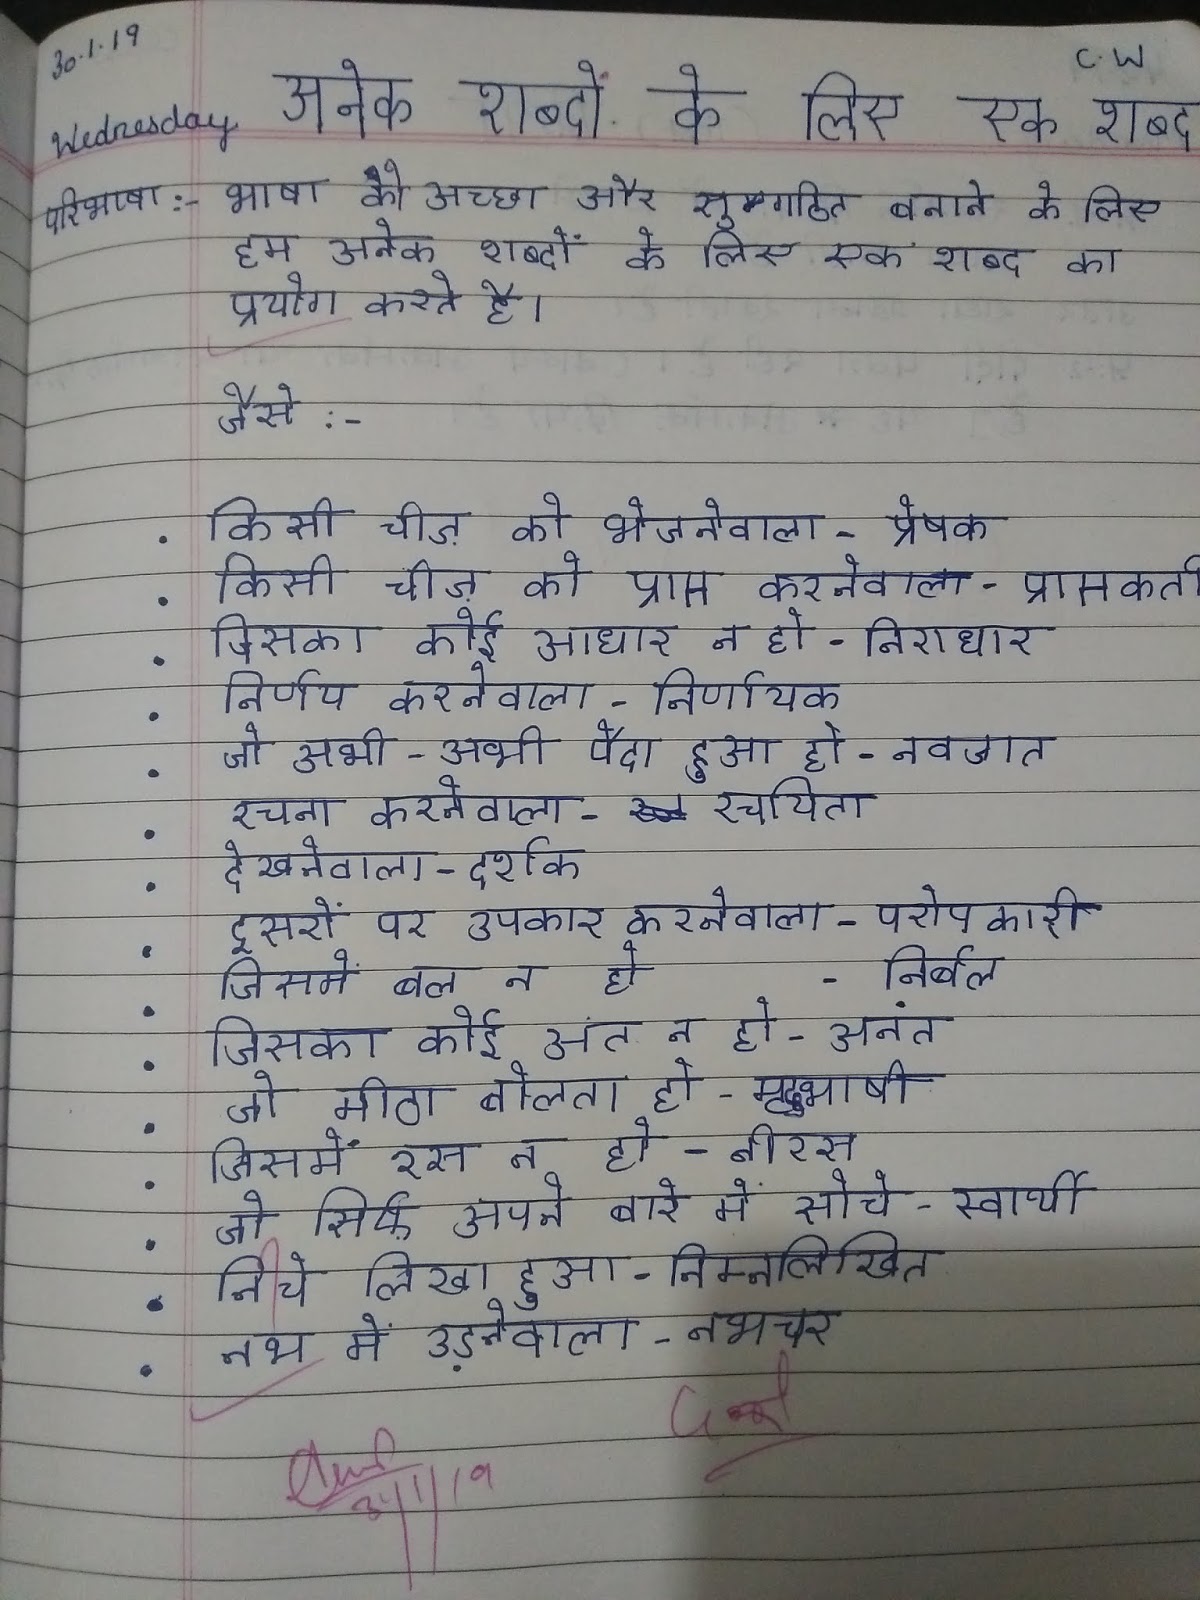 30.1.19
C.W
Wednesday
अनेक शब्दों के लिए एक शब्द
परिभाषा :- भाषा को अच्छा और सुगठित बनाने के लिए
हम अनेक शब्दों के लिए एक शब्द का
प्रयोग करते है।
जैसे :-
• किसी चीज़ को भेजनेवाला - प्रेषक
• किसी चीज़ को प्राप्त करनेवाला - प्राप्तकर्ता
• जिसका कोई आधार न हो - निराधार
• निर्णय करनेवाला - निर्णायक
• जो अभी - अभी पैदा हुआ हो - नवजात
• रचना करनेवाला - रचयिता
• देखनेवाला - दर्शक
• दूसरों पर उपकार करनेवाला - परोपकारी
• जिसमें बल न हो - निर्बल
• जिसका कोई अंत न हो - अनंत
• जो मीठा बोलता हो - मृदुभाषी
• जिसमें रस न हो - नीरस
• जो सिर्फ़ अपने बारे में सोचे - स्वार्थी
• नीचे लिखा हुआ - निम्नलिखित
• नभ में उड़नेवाला - नभचर
Good
31/1/19